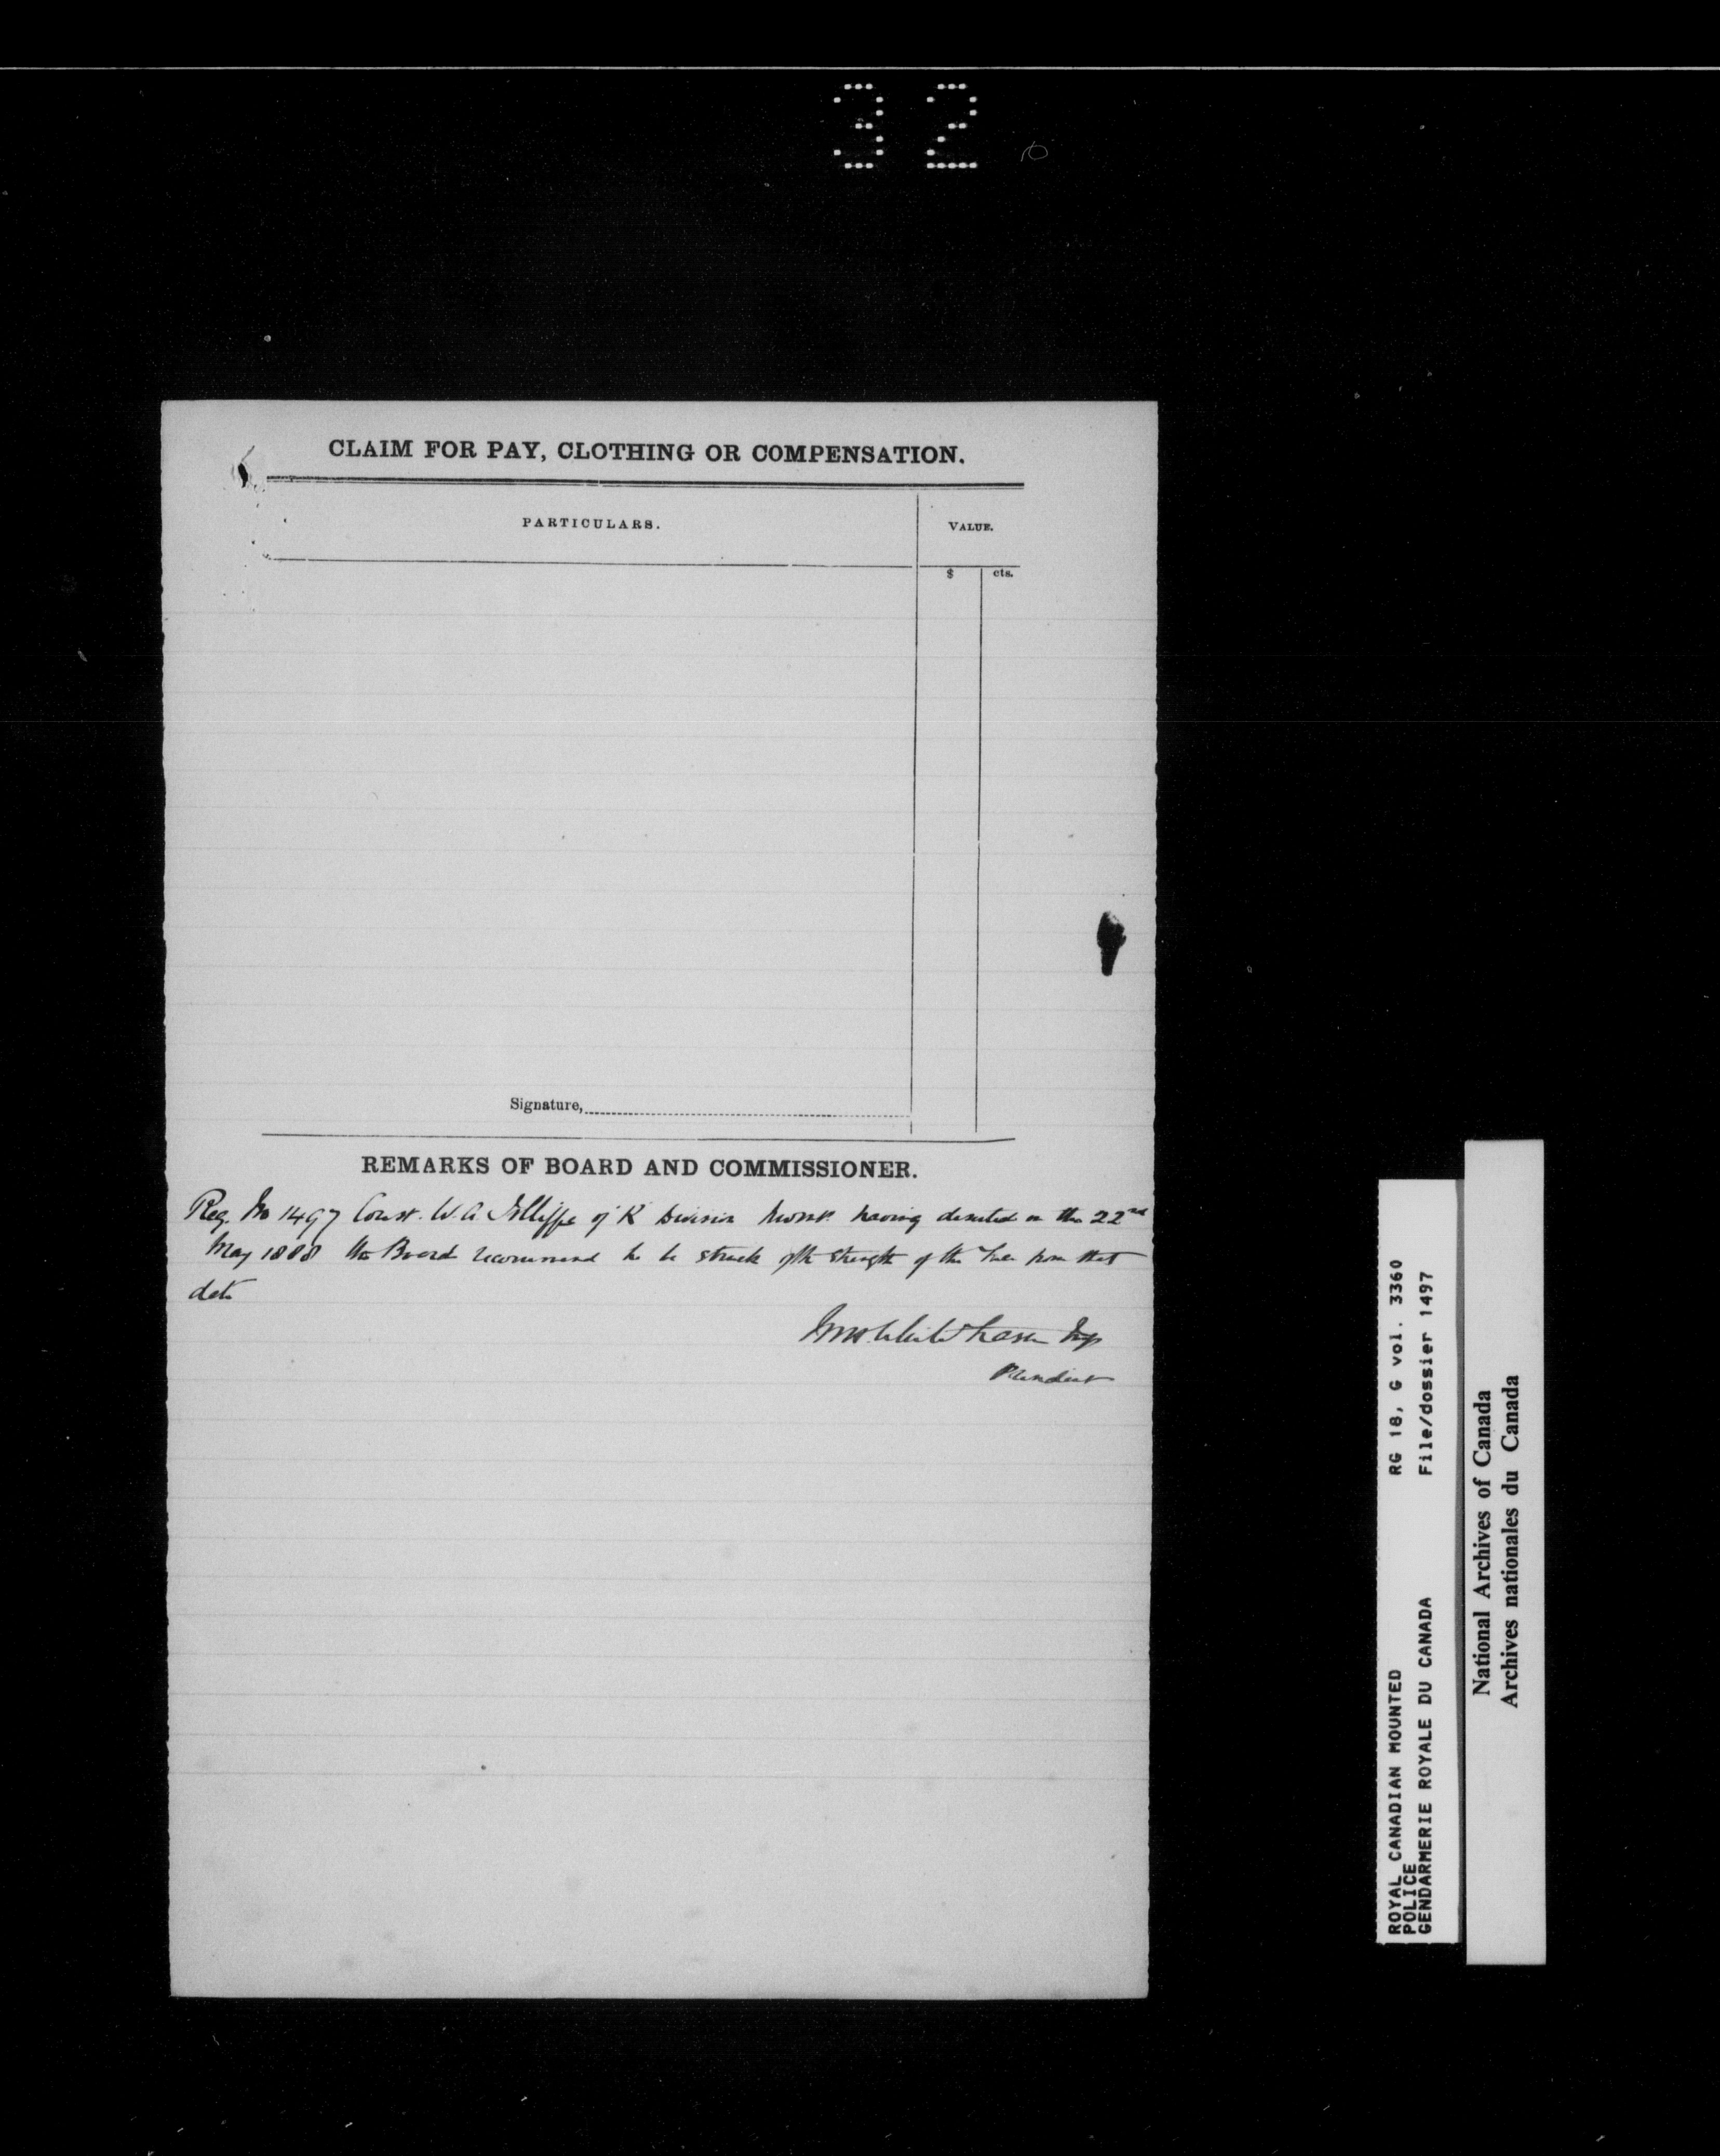 32
CLAIM FOR PAY, CLOTHING OR COMPENSATION.
PARTICULARS.
VALUE.
$ cts.
Signature,
REMARKS OF BOARD AND COMMISSIONER.
Reg. No 1497 Const. W. A. of K Division NWMP. having deserted on the 22nd
May 1888 the Board recommend he be struck off the strength of the Force from that
date
Insp
President
ROYAL CANADIAN MOUNTED
POLICE
GENDARMERIE ROYALE DU CANADA
RG 18, G vol. 3360
File/dossier 1497
National Archives of Canada
Archives nationales du Canada